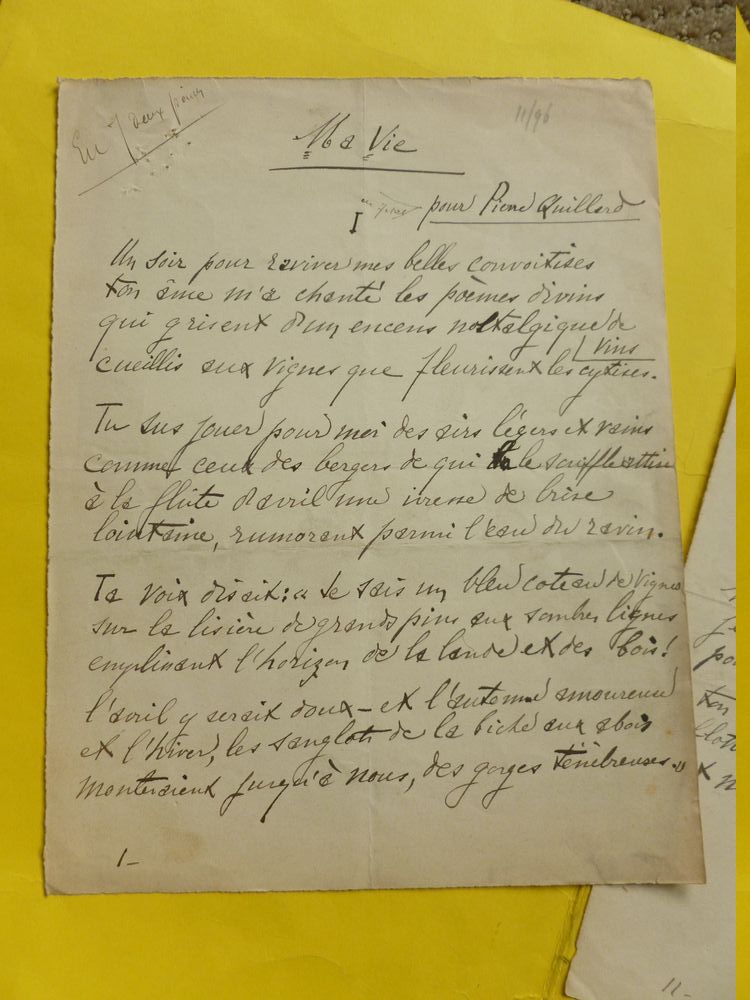 En 7 deux
11/96
Ma Vie
I pour Pierre Quillard
Un soir pour raviver mes belles convoitises
ton âme m'a chanté les poèmes divins
qui grisent d'un encens nostalgique de
vins
cueillis aux vignes que fleurissent les cytises.
Tu sus jouer pour moi des airs légers et vains
comme ceux des bergers de qui le souffle attise
à la flûte d'avril une ivresse de brise
lointaine, rumorant parmi l'eau du ravin.
Ta voix disait : « Je sais un bleu coteau de vignes
sur la lisière de grands pins aux sombres lignes
emplissant l'horizon de la lande et des bois !
l'avril y serait doux – et l'automne amoureuse
et l'hiver, les sanglots de la biche aux abois
monteraient jusqu'à nous, des gorges ténébreuses. »
1-
ton
11-